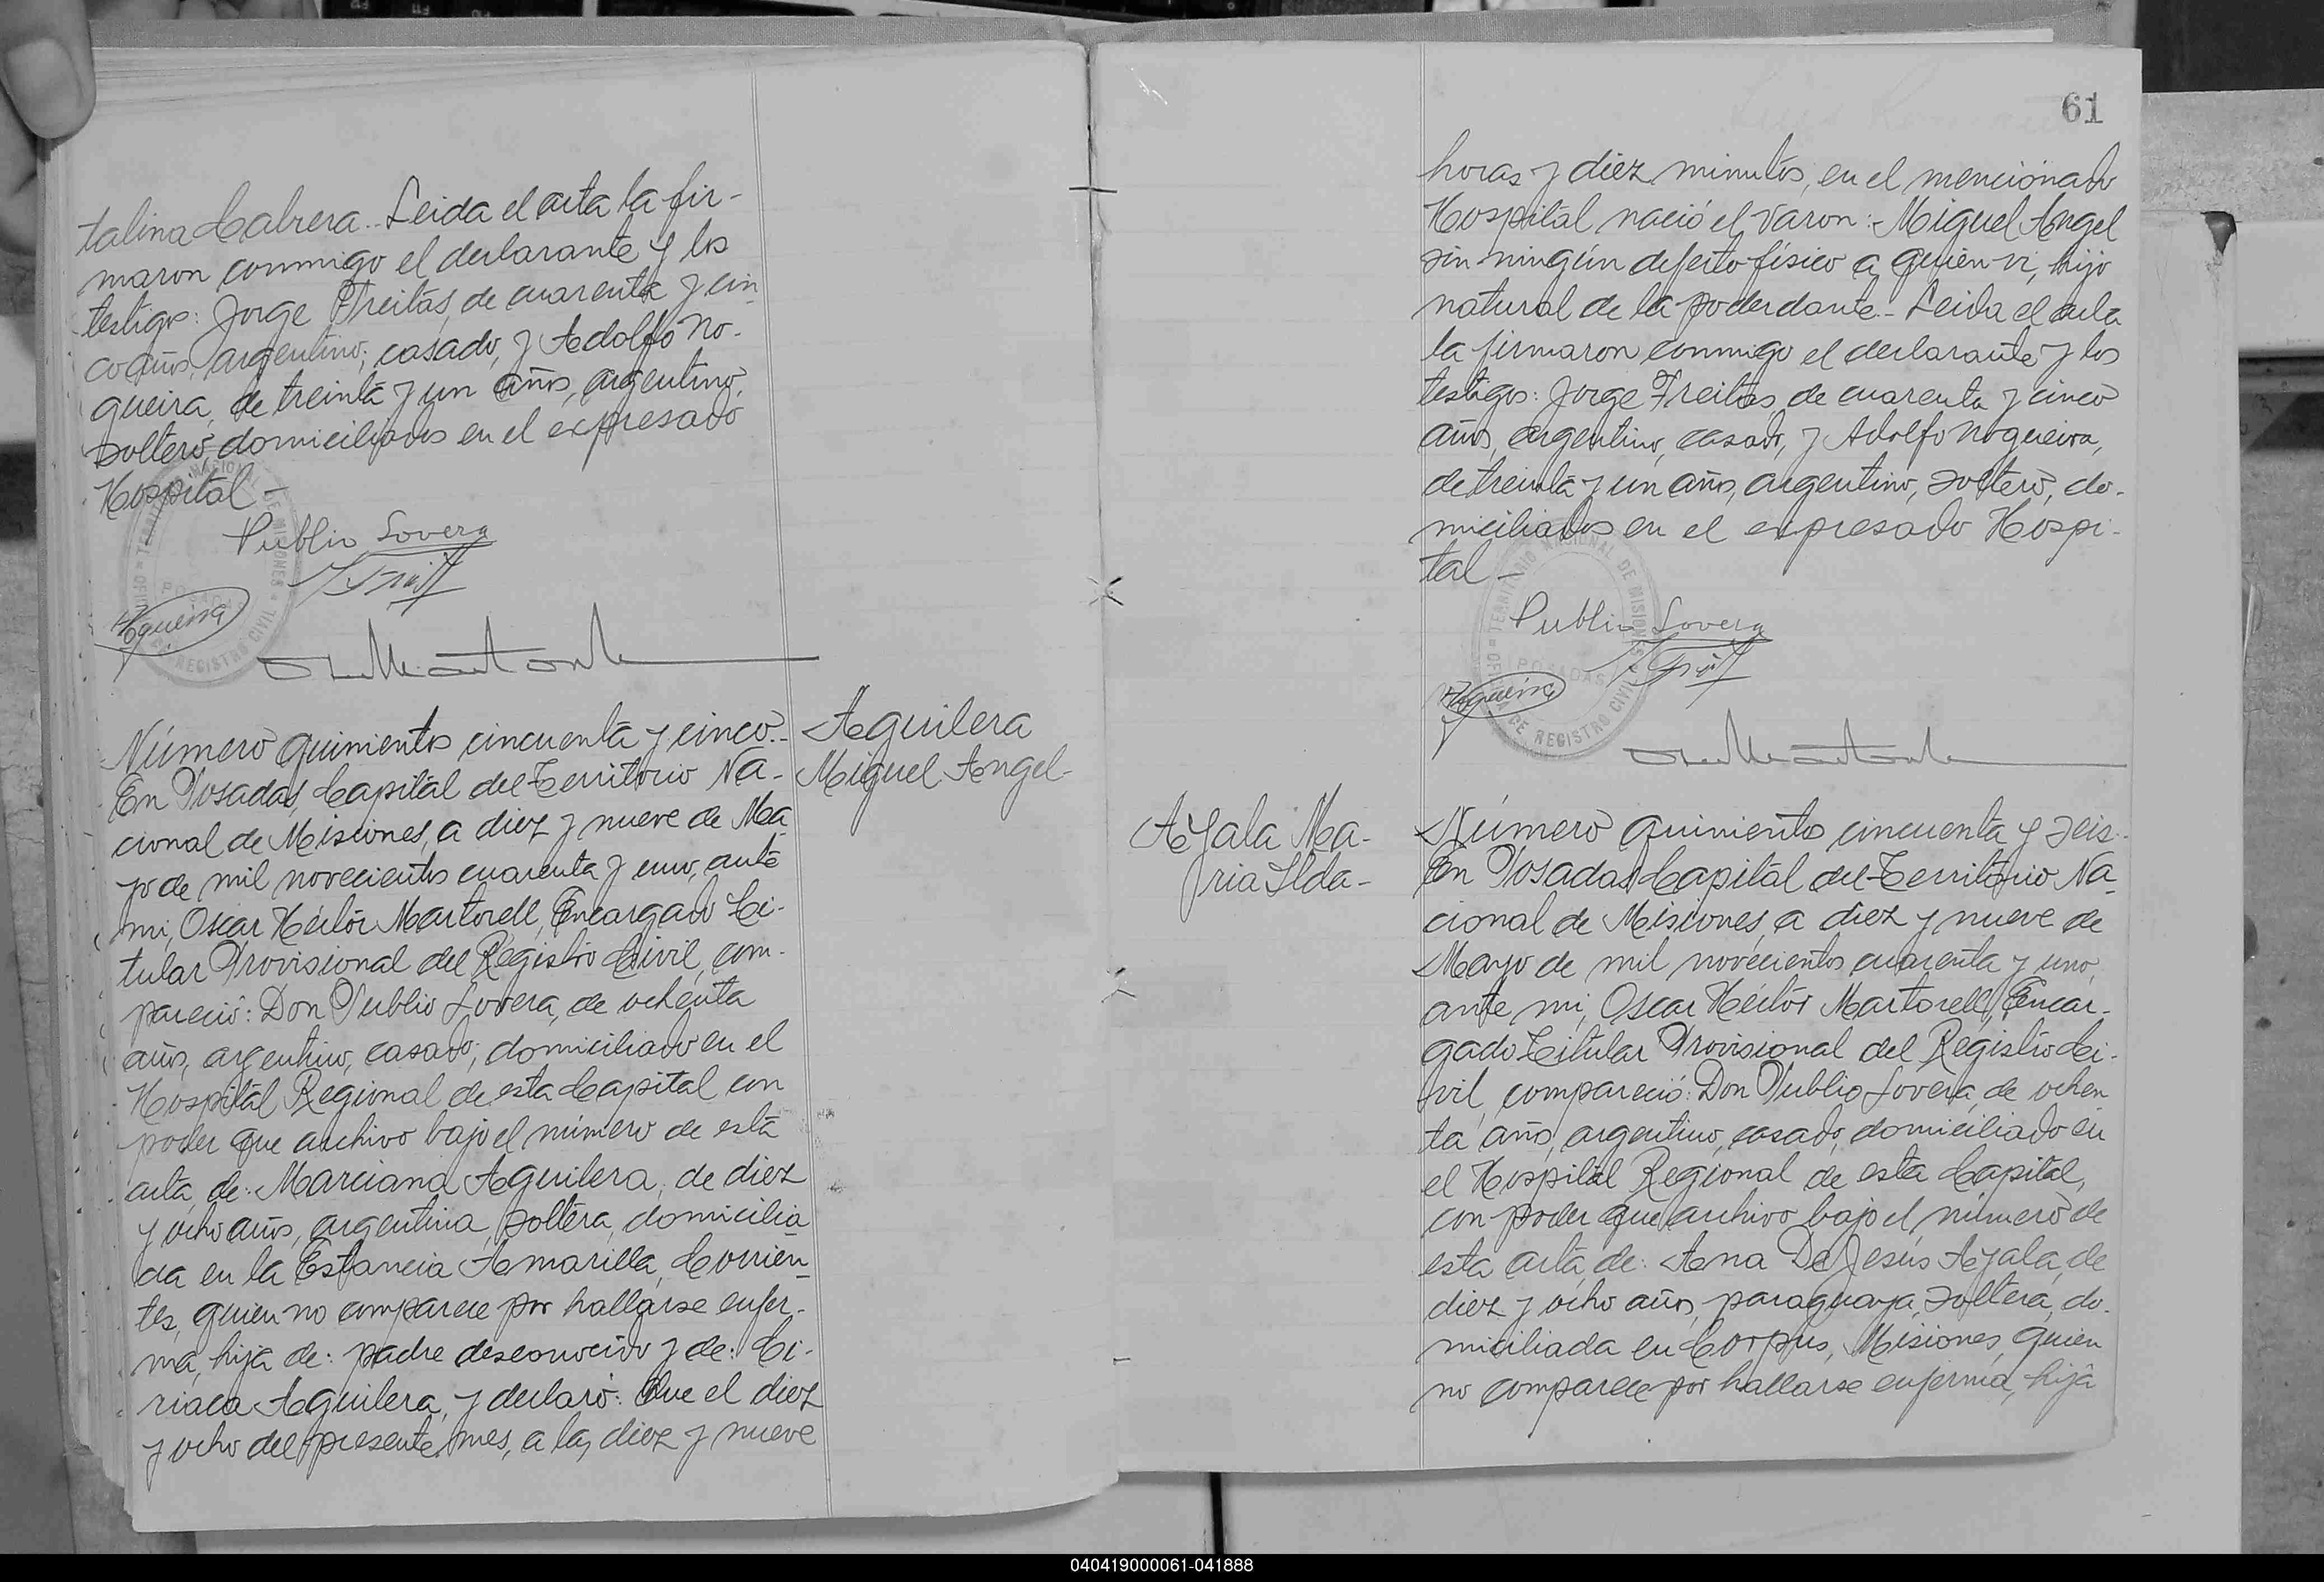 talina Cabrera.- Leida el acta la fir-
maron conmigo el declarante y los
testigos: Jorge Freitas, de cuarenta y cin
co años, argentino, casado, y Adolfo No-
gueira, de treinta y un años, argentino,
soltero, domiciliados en el expresado
Hospital -
Publio Lovera
Nogueira
Número quinientos cincuenta y cinco.-
En Posadas, Capital del Territorio Na-
cional de Misiones, a diez y nueve de Ma
yo de mil novecientos cuarenta y uno, ante
mi, Oscar Héctor Martorell, Encargado Ti-
tular Provisional del Registro Civil, com-
pareció: Don Publio Lovera, de ochenta
años, argentino, casado, domiciliado en el
Hospital Regional de esta Capital con
poder que archivo bajo el número de esta
acta, de: Marciana Aguilera, de diez
y ocho años, argentina, soltera, domicilia
da en la Estancia Amarilla, Corrien-
tes, quien no comparece por hallarse enfer-
ma, hija de: padre desconocido y de: Ci-
riaca Aguilera, y declaró: Que el diez
y ocho del presente mes, a las diez y nueve
Aguilera
Miguel Angel-
61
horas y diez minutos, en el mencionado
Hospital nació el varon: Miguel Angel
sin ningún defecto físico a quien vi, hijo
natural de la poderdante.- Leida el acta
la firmaron conmigo el declarante y los
testigos: Jorge Freitas, de cuarenta y cinco
años, argentino, casado, y Adolfo Nogueira,
de treinta y un años, argentino, soltero, do-
miciliados en el expresado Hospi-
tal -
Publio Lovera
Nogueira
Ayala Ma-
ria Ilda-
Número quinientos cincuenta y seis.-
En Posadas, Capital del Territorio Na-
cional de Misiones, a diez y nueve de
Mayo de mil novecientos cuarenta y uno,
ante mi, Oscar Héctor Martorell, Encar-
gado Titular Provisional del Registro Ci-
vil, compareció: Don Publio Lovera, de ochen
ta años, argentino, casado, domiciliado en
el Hospital Regional de esta Capital,
con poder que archivo bajo el número de
esta acta, de: Ana De Jesús Ayala, de
diez y ocho años, paraguaya, soltera, do-
miciliada en Corpus, Misiones, quien
no comparece por hallarse enferma, hija
040419000061-041888